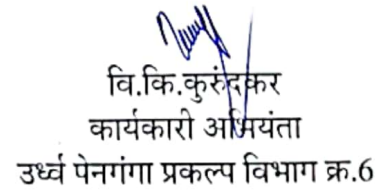 वि.कि.कुरुंदकर
कार्यकारी अभियंता
उर्ध्व पेनगंगा प्रकल्प विभाग क्र.6